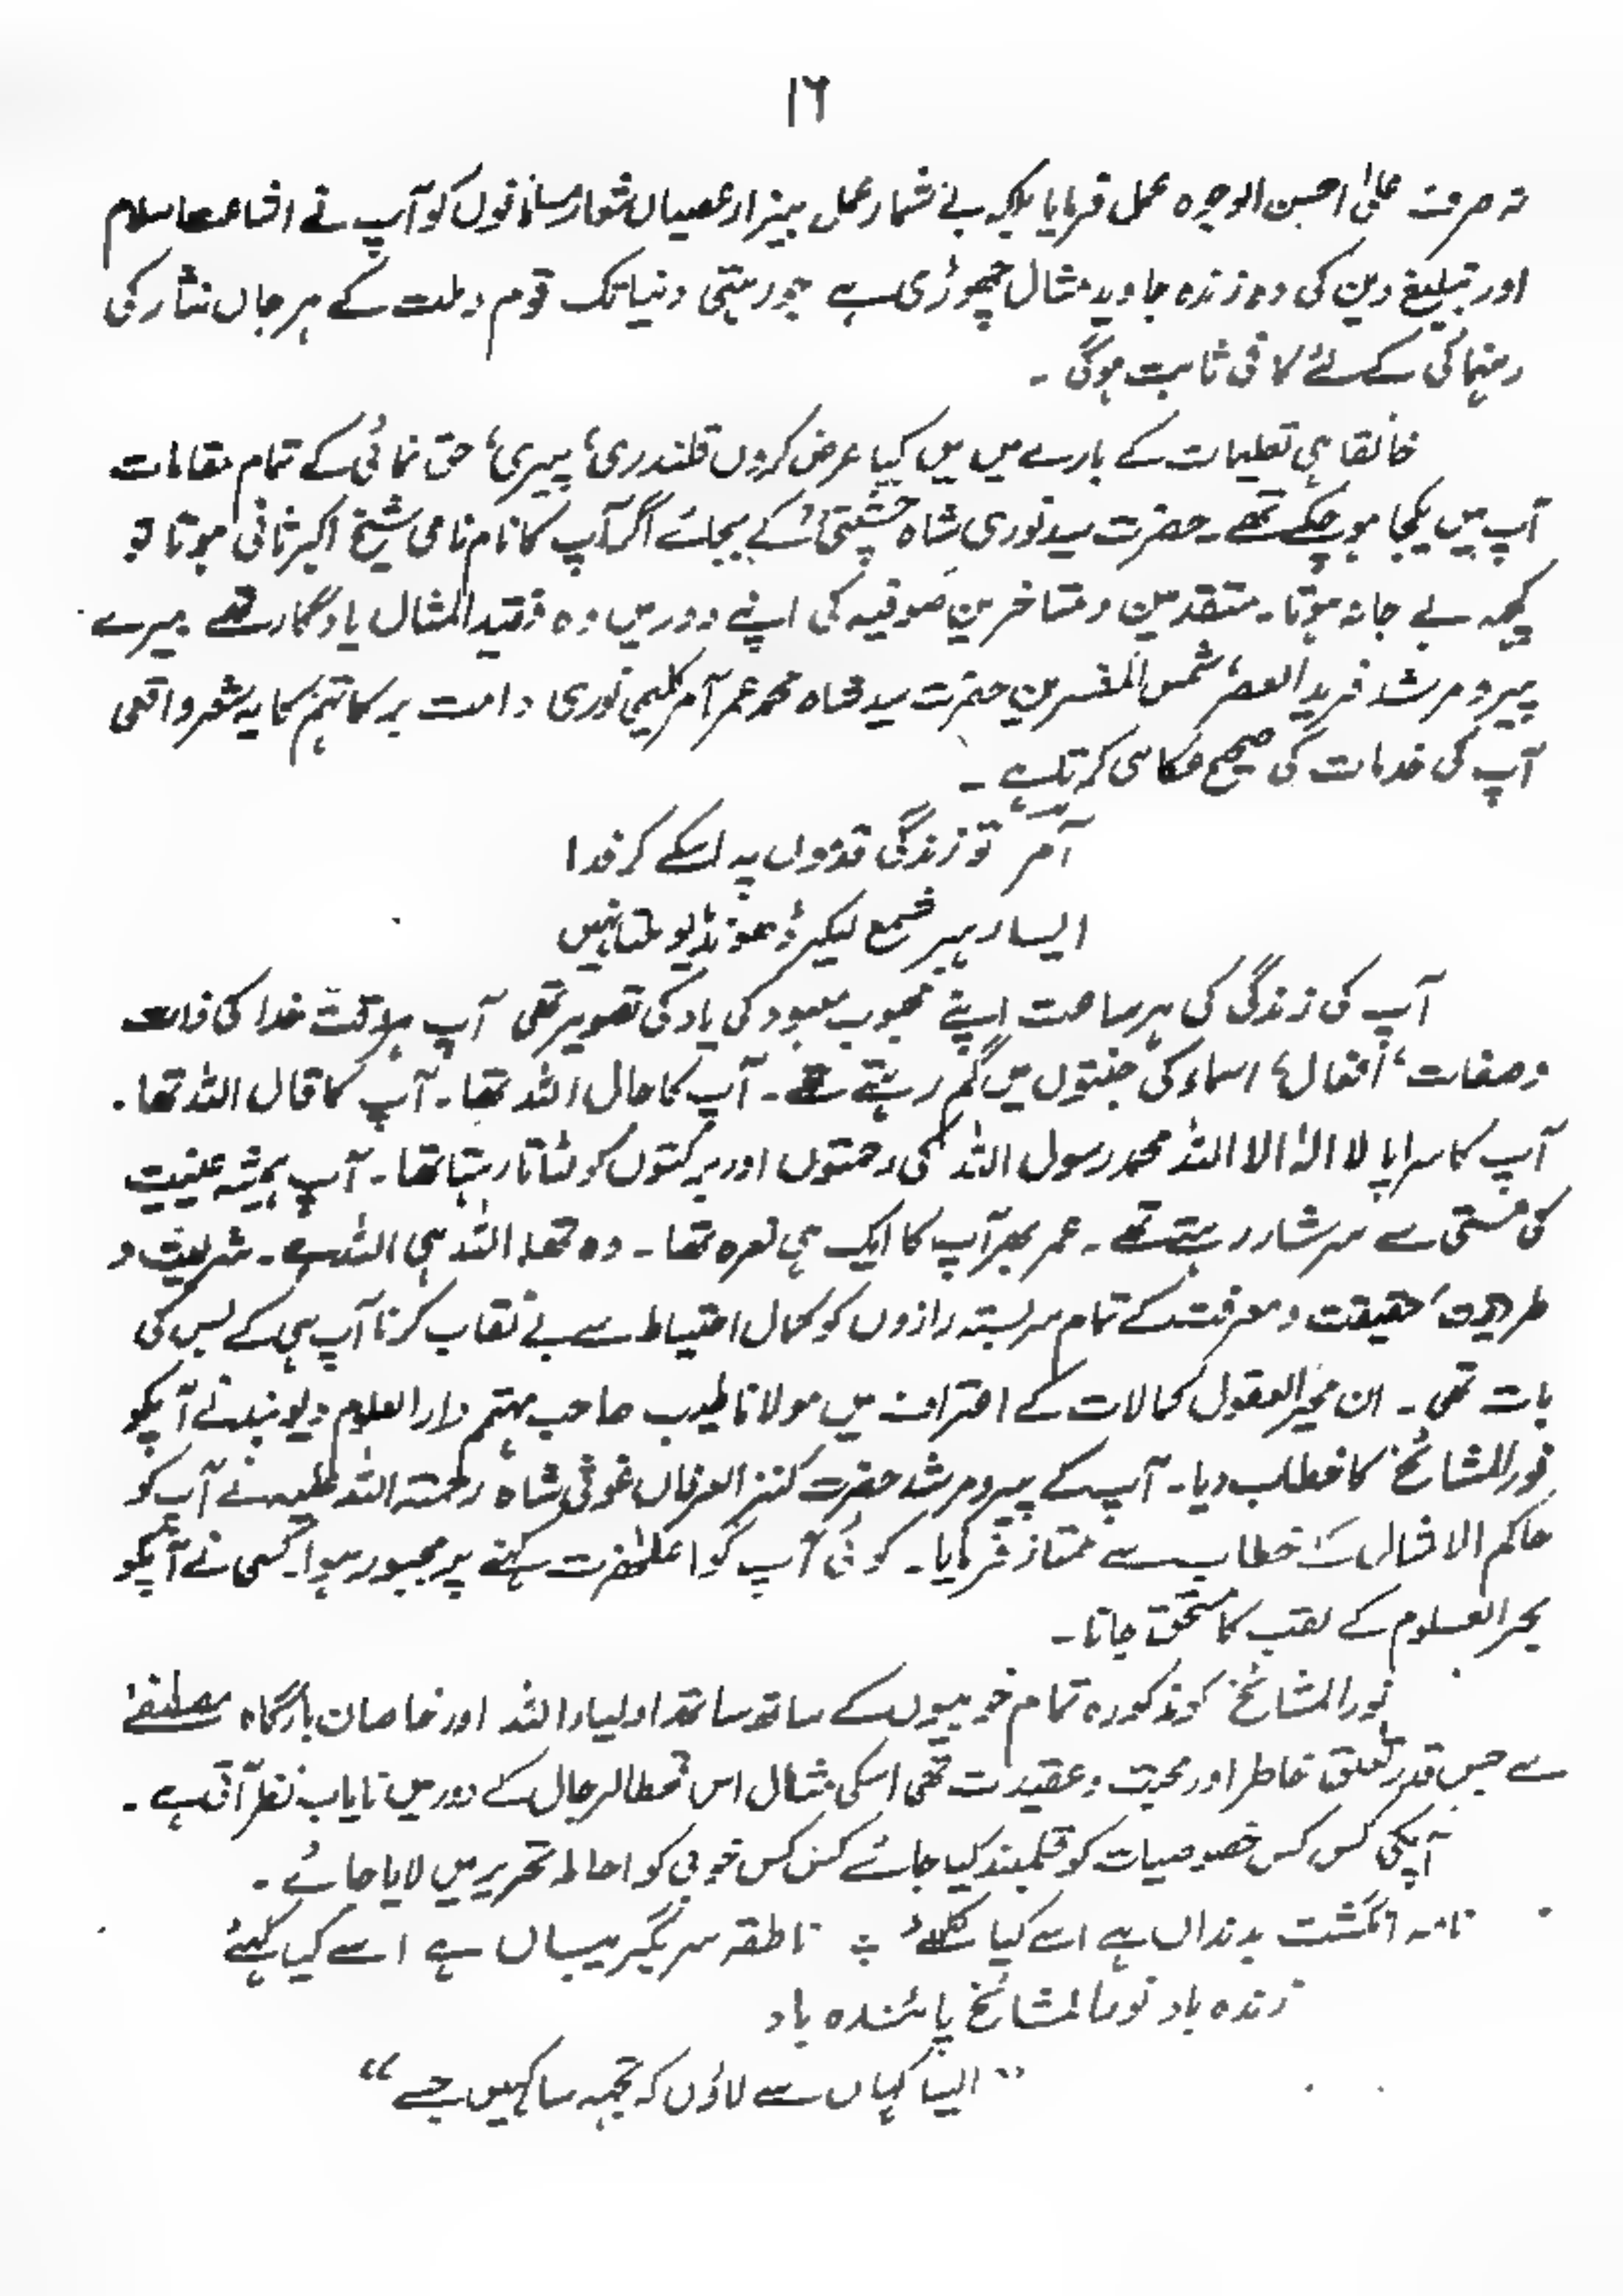 ۱۶
نہ صرف علیٰ احسن الوجوہ عمل فرمایا بلکہ بے شمار عمل بیزار عصیاں شعار مسلمانوں کو آپ نے اشاعت اسلام
اور تبلیغ دین کی وہ زندہ جاوید مثال چھوڑی ہے جو رہتی دنیا تک قوم و ملت کے ہر جاں نثار کی
رہنمائی کے لئے کافی ثابت ہوگی ۔
خانقاہی تعلیمات کے بارے میں میں کیا عرض کروں قلندری، پیری، حق نمائی کے تمام مقامات
آپ میں یکجا ہو چکے تھے ۔ حضرت سید نوری شاہ چشتیؒ کے بجائے اگر آپ کا نام نامی شیخ اکبر ثانی ہوتا تو
کچھ بے جا نہ ہوتا ۔ متقدمین و متاخرین صوفیہ کی اپنے دور میں وہ فقید المثال یادگار تھے میرے
پیر و مرشد فرید العصر شمس المفسرین حضرت سید شاہ محمد عمر آمر کلیمی نوری دامت برکاتہم کا یہ شعر واقعی
آپ کی خدمات کی صحیح عکاسی کرتا ہے ۔
آمرؔ تو زندگی قدموں پہ اسکے کر فدا
ایسا رہبر شمع لیکر ڈھونڈیو ملتا نہیں
آپ کی زندگی کی ہر ساعت اپنے محبوب معبود کی یاد کی تصویر تھی آپ ہر وقت خدا کی ذات
و صفات، افعال، اسماء کی جنتوں میں گم رہتے تھے ۔ آپ کا حال اللہ تھا ۔ آپ کا قال اللہ تھا ۔
آپ کا سراپا لا الٰہ الا اللہ محمد رسول اللہ کی رحمتوں اور برکتوں کو لٹاتا رہتا تھا ۔ آپ ہمیشہ عینیت
کی مستی سے سرشار رہتے تھے ۔ عمر بھر آپ کا ایک ہی نعرہ تھا ۔ وہ تھا اللہ ہی اللہ ہے ۔ شریعت و
طریقت، حقیقت و معرفت کے تمام سربستہ رازوں کو کمال احتیاط سے بے نقاب کرنا آپ ہی کے بس کی
بات تھی ۔ ان محیر العقول کمالات کے اعتراف میں مولانا طیب صاحب مہتمم دارالعلوم دیوبند نے آپکو
نورالمشائخ کا خطاب دیا ۔ آپ کے پیر و مرشد حضرت کنز العرفان غوثی شاہ رحمتہ اللہ علیہ نے آپ کو
حاکم الافضال کے خطاب سے ممتاز فرمایا ۔ کوئی آپ کو اعلحضرت کہنے پر مجبور ہوا ۔ کسی نے آپکو
بحر العلوم کے لقب کا مستحق جانا ۔
نورالمشائخ کو مذکورہ تمام خوبیوں کے ساتھ ساتھ اولیاء اللہ اور خاصان بارگاہ مصطفےٰ
سے جس قدر تعلق خاطر اور محبت و عقیدت تھی اسکی مثال اس قحط الرجال کے دور میں نایاب نظر آتی ہے ۔
آپکی کس کس خصوصیات کو قلمبند کیا جائے کس کس خوبی کو احاطہ تحریر میں لایا جائے ۔
خامہ انگشت بدنداں ہے اسے کیا لکھئے ؛ ناطقہ سربگریباں ہے اسے کیا کہئے
زندہ باد نورالمشائخ پائندہ باد
” ایسا کہاں سے لاؤں کہ تجھ سا کہیں جسے “